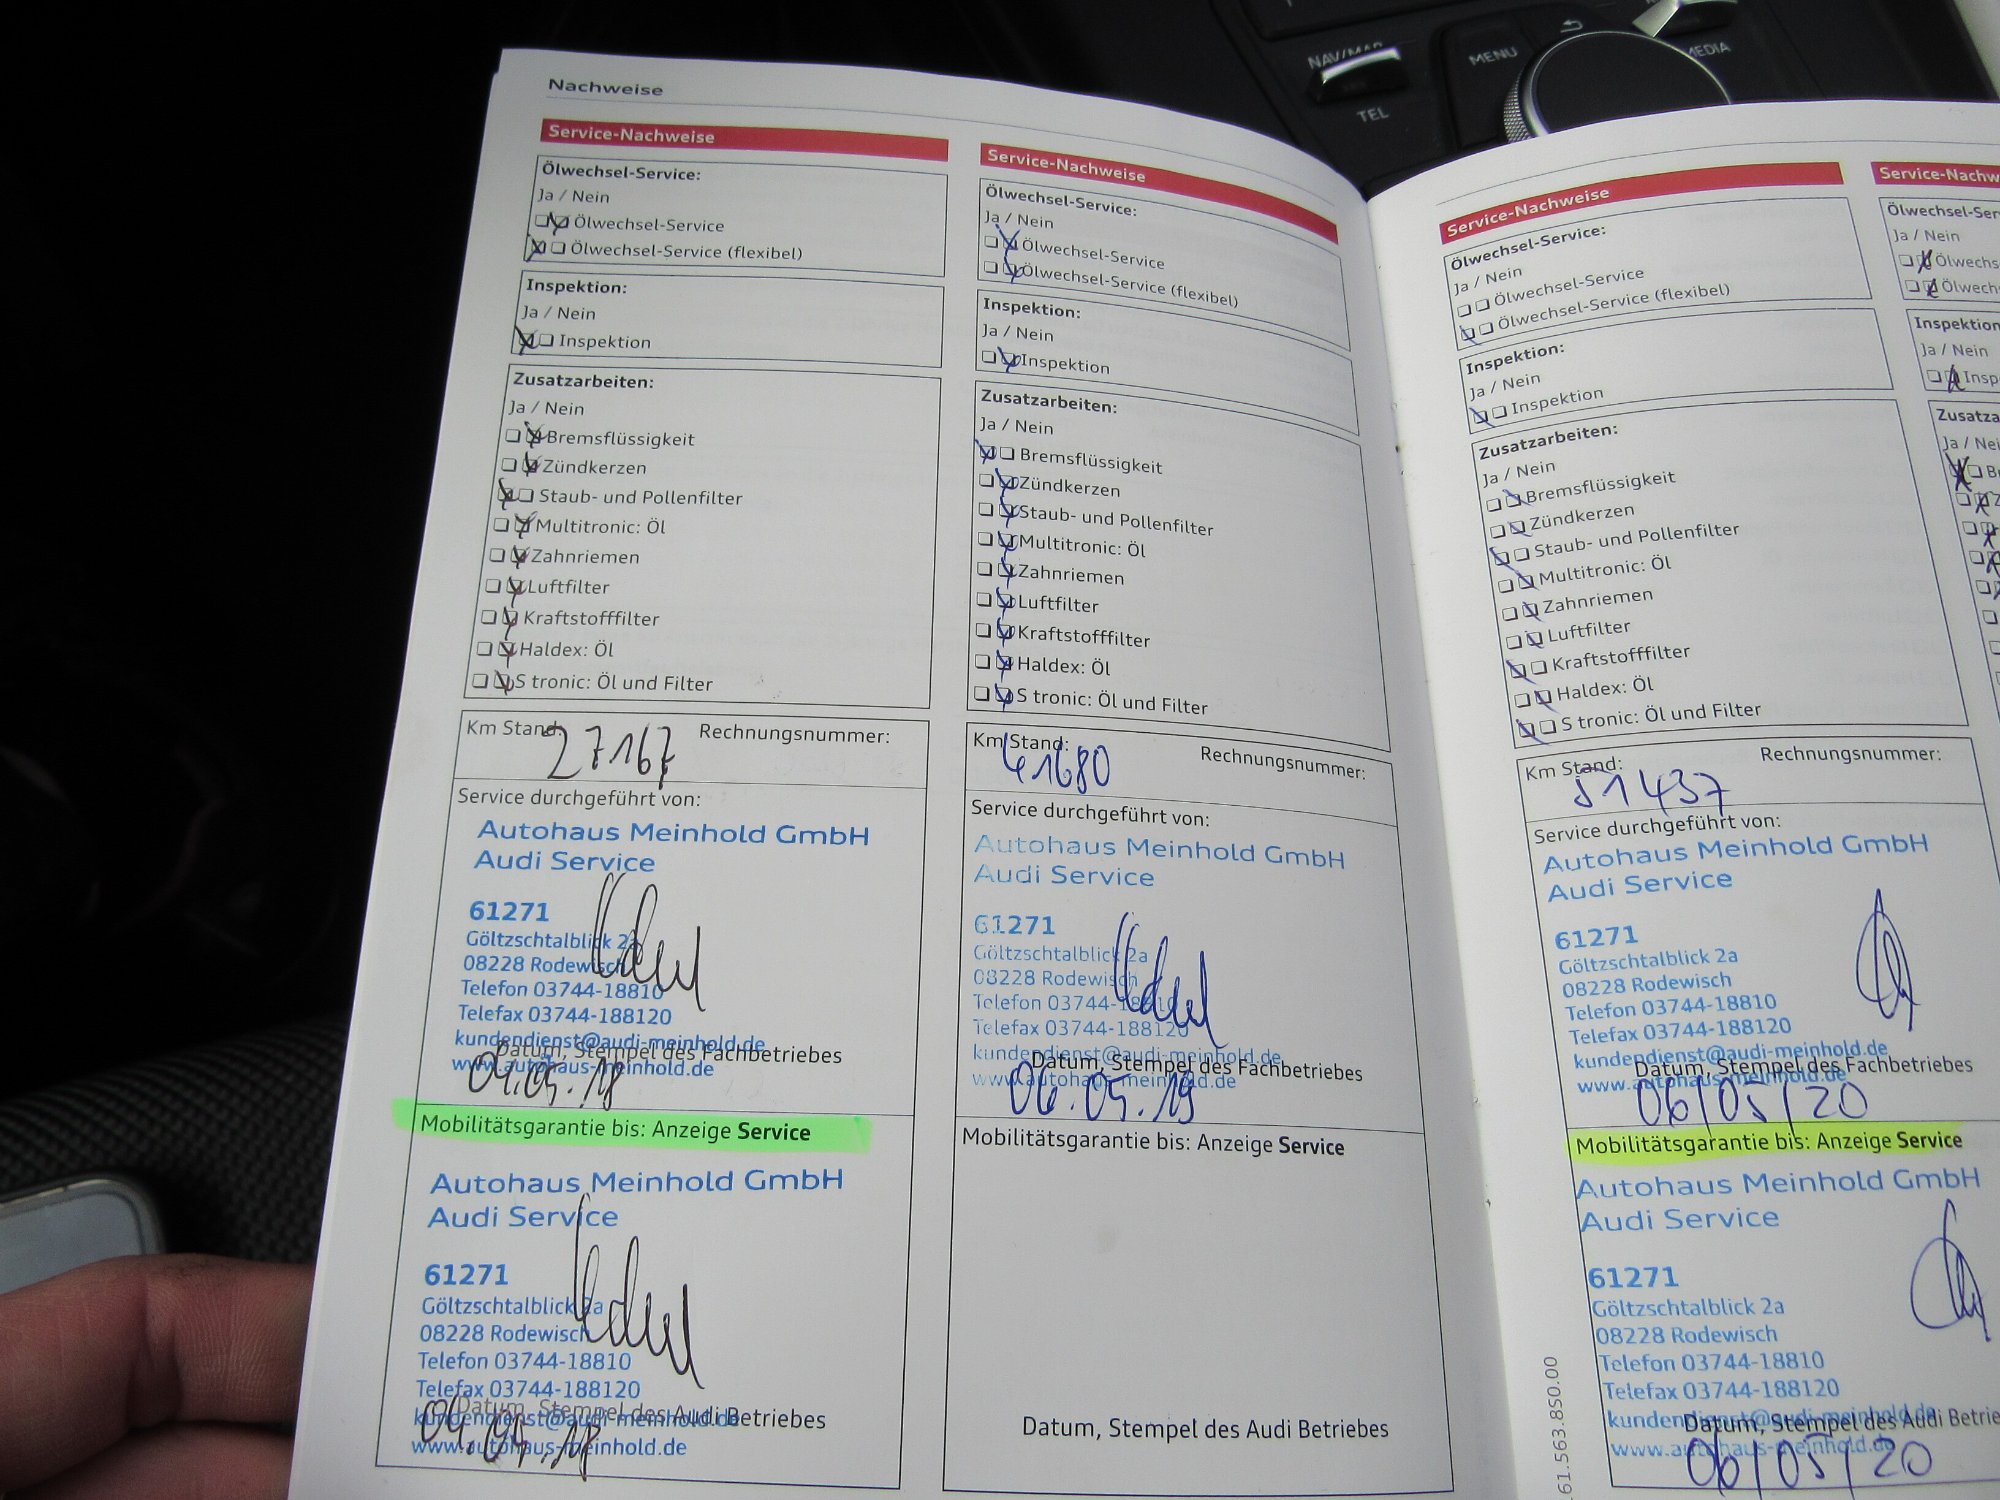 NAV/MAP
TEL
MENU
MEDIA
Nachweise
Service-Nachweise
Ölwechsel-Service:
Ja / Nein
Ölwechsel-Service
Ölwechsel-Service (flexibel)
Inspektion:
Ja / Nein
Inspektion
Zusatzarbeiten:
Ja / Nein
Bremsflüssigkeit
Zündkerzen
Staub- und Pollenfilter
Multitronic: Öl
Zahnriemen
Luftfilter
Kraftstofffilter
Haldex: Öl
S tronic: Öl und Filter
Km Stand: 27167 Rechnungsnummer:
Service durchgeführt von:
Autohaus Meinhold GmbH
Audi Service
61271
Göltzschtalblick 2a
08228 Rodewisch
Telefon 03744-18810
Telefax 03744-188120
kundendienst@audi-meinhold.de
Datum, Stempel des Fachbetriebes
www.autohaus-meinhold.de
Mobilitätsgarantie bis: Anzeige Service
Autohaus Meinhold GmbH
Audi Service
61271
Göltzschtalblick 2a
08228 Rodewisch
Telefon 03744-18810
Telefax 03744-188120
kundendienst@audi-meinhold.de
Datum, Stempel des Audi Betriebes
www.autohaus-meinhold.de
Service-Nachweise
Ölwechsel-Service:
Ja / Nein
Ölwechsel-Service
Ölwechsel-Service (flexibel)
Inspektion:
Ja / Nein
Inspektion
Zusatzarbeiten:
Ja / Nein
Bremsflüssigkeit
Zündkerzen
Staub- und Pollenfilter
Multitronic: Öl
Zahnriemen
Luftfilter
Kraftstofffilter
Haldex: Öl
S tronic: Öl und Filter
Km Stand: 41680 Rechnungsnummer:
Service durchgeführt von:
Autohaus Meinhold GmbH
Audi Service
61271
Göltzschtalblick 2a
08228 Rodewisch
Telefon 03744-18810
Telefax 03744-188120
kundendienst@audi-meinhold.de
Datum, Stempel des Fachbetriebes
www.autohaus-meinhold.de
06.05.19
Mobilitätsgarantie bis: Anzeige Service
Datum, Stempel des Audi Betriebes
Service-Nachweise
Ölwechsel-Service:
Ja / Nein
Ölwechsel-Service
Ölwechsel-Service (flexibel)
Inspektion:
Ja / Nein
Inspektion
Zusatzarbeiten:
Ja / Nein
Bremsflüssigkeit
Zündkerzen
Staub- und Pollenfilter
Multitronic: Öl
Zahnriemen
Luftfilter
Kraftstofffilter
Haldex: Öl
S tronic: Öl und Filter
Km Stand: 51437 Rechnungsnummer:
Service durchgeführt von:
Autohaus Meinhold GmbH
Audi Service
61271
Göltzschtalblick 2a
08228 Rodewisch
Telefon 03744-18810
Telefax 03744-188120
kundendienst@audi-meinhold.de
Datum, Stempel des Fachbetriebes
www.autohaus-meinhold.de
06/05/20
Mobilitätsgarantie bis: Anzeige Service
Autohaus Meinhold GmbH
Audi Service
61271
Göltzschtalblick 2a
08228 Rodewisch
Telefon 03744-18810
Telefax 03744-188120
kundendienst@audi-meinhold.de
Datum, Stempel des Audi Betrie
www.autohaus-meinhold.de
06/05/20
161.563.850.00
Service-Nachw
Ölwechsel-Ser
Ja / Nein
Ölwechs
Ölwech
Inspektion
Ja / Nein
Insp
Zusatza
Ja / Nei